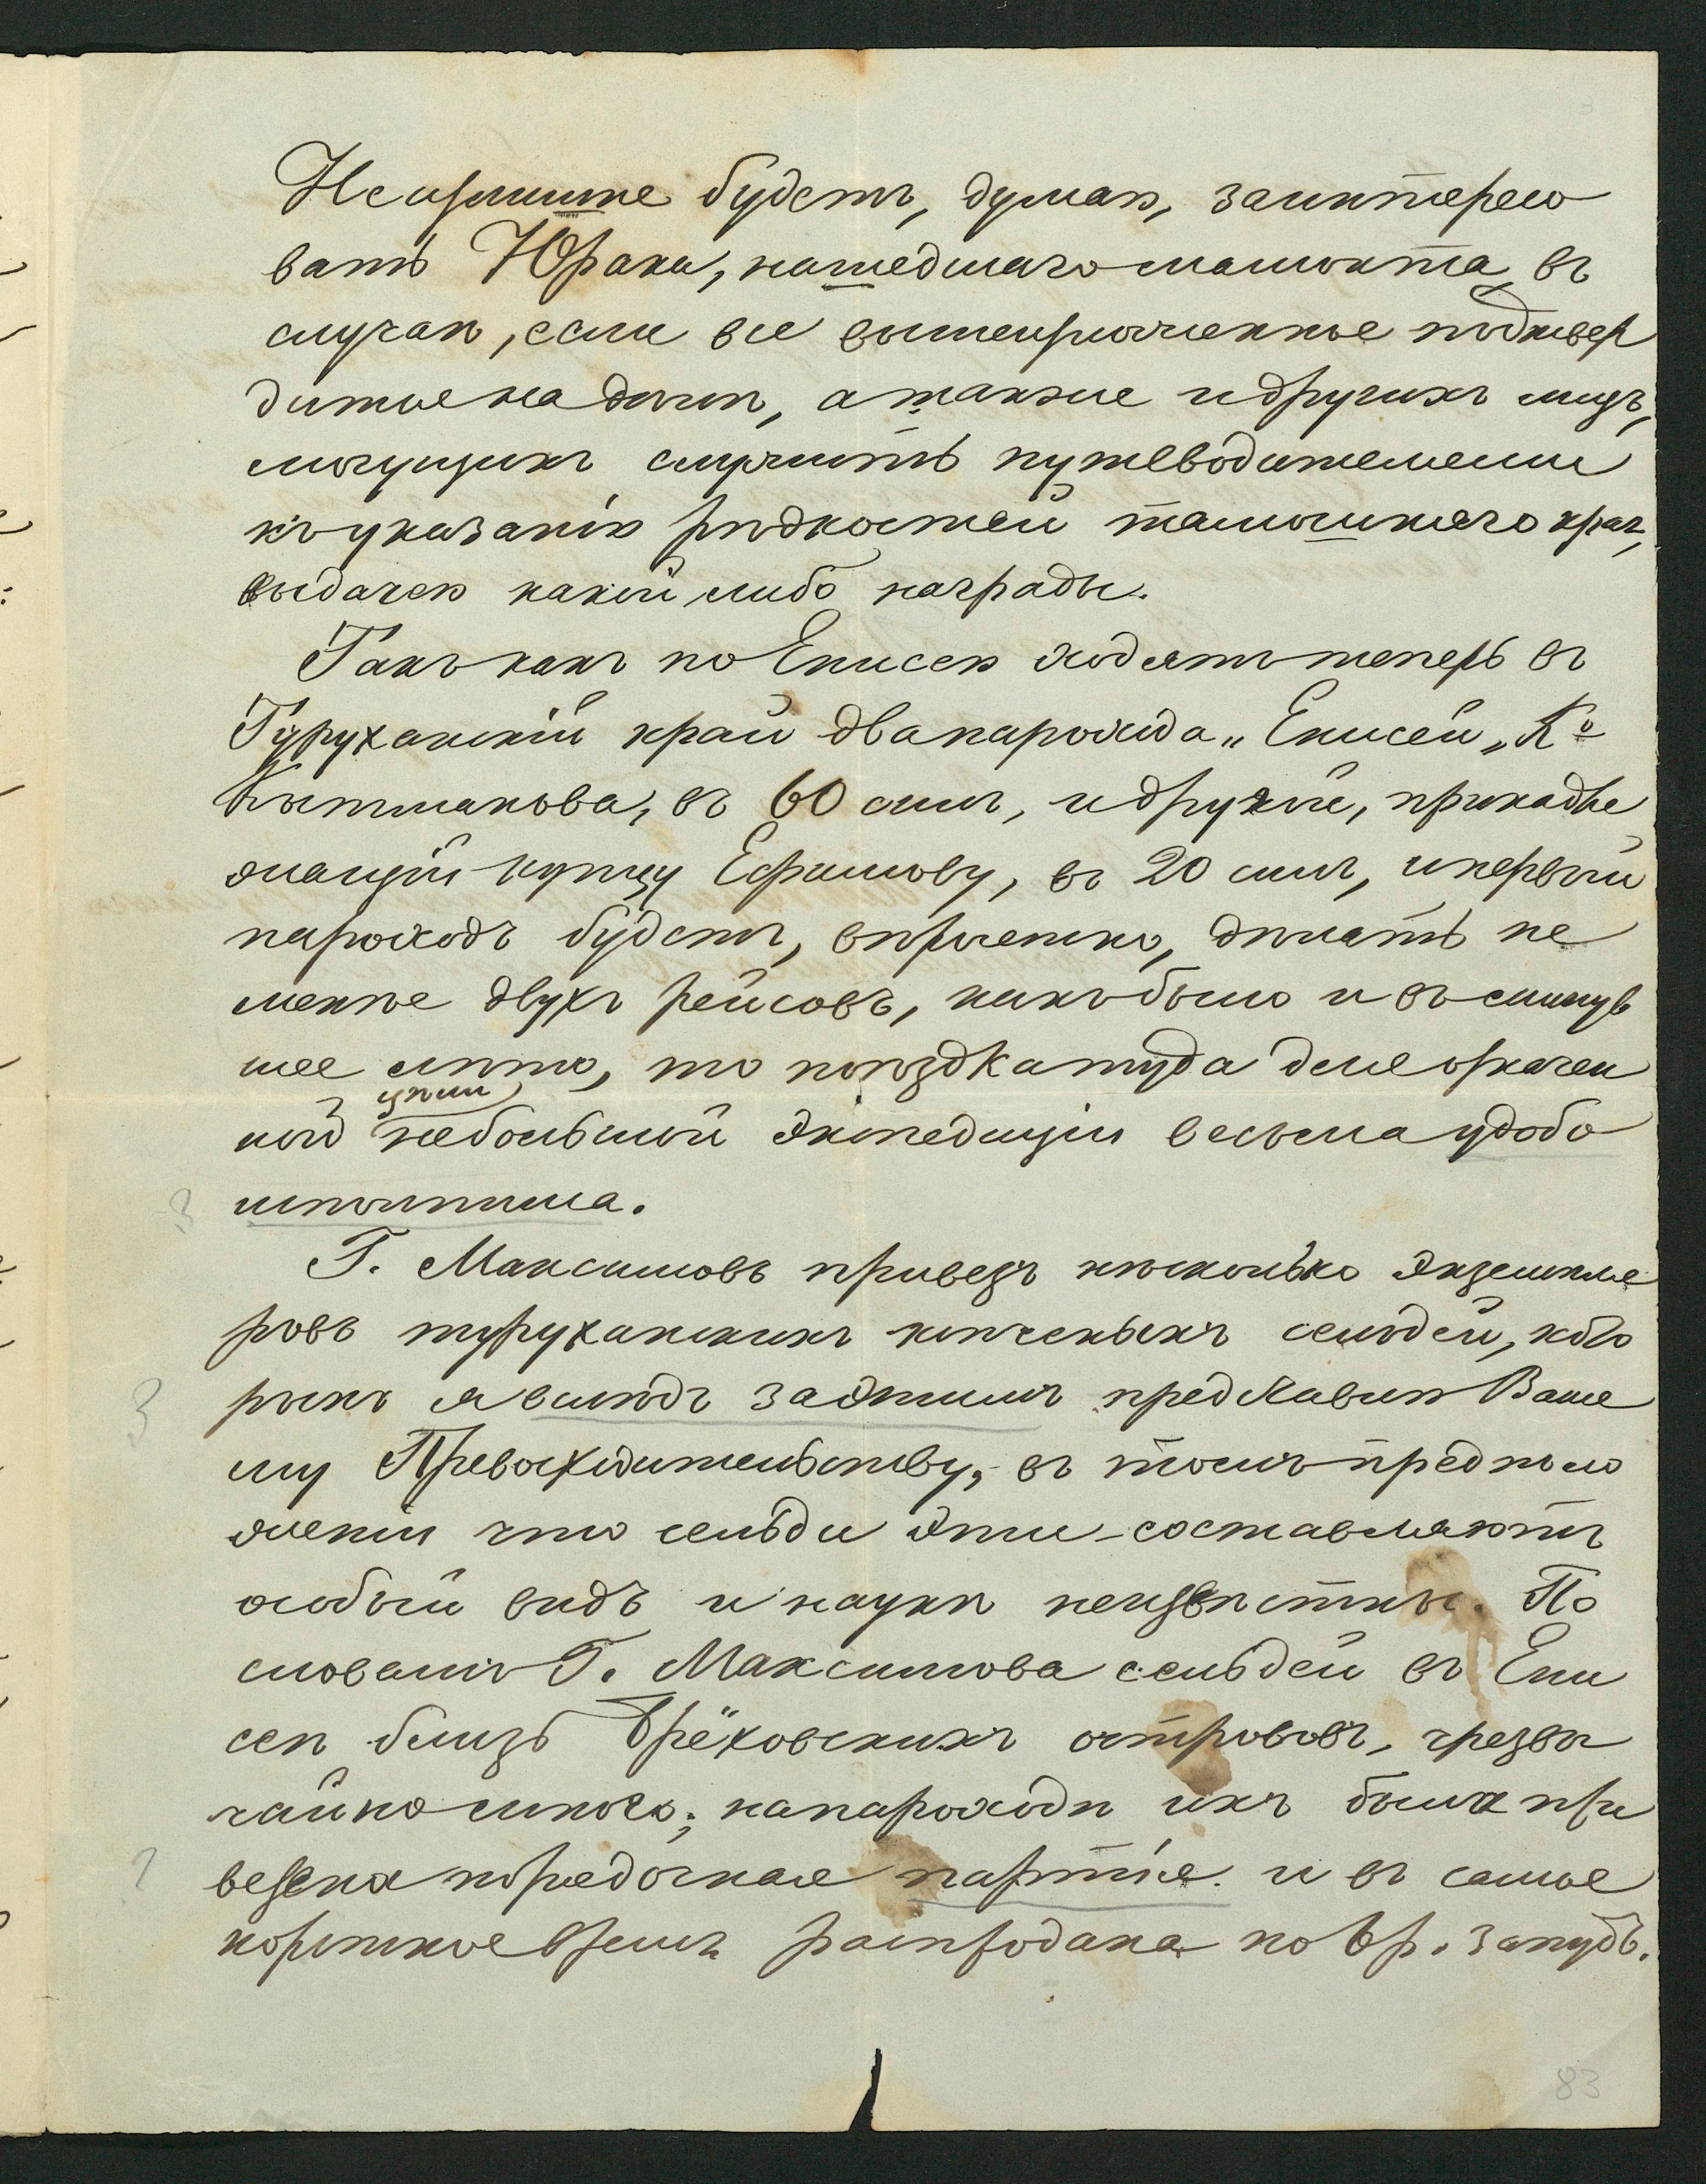 Неизлишне будетъ, думаю, заинтересо
вать Юрака, нашедшаго мамонта, въ
случаѣ, если все вышеизложенное подтвер
дится на дѣлѣ, а также и другихъ лицъ,
могущихъ служить путеводителеми
къ указанію рѣдкостей тамошняго края,
выдачею какой либо награды.
Такъ какъ по Енисею ходятъ теперь въ
Туруханскій край два парохода „Енисей„ Ко
Кытманова, въ 60 силъ, и другой, принадле
жащій купцу Ефимову, въ 20 силъ, и первый
пароходъ будетъ, вѣроятно, дѣлать не
менѣе двухъ рейсовъ, какъ было и въ минув
шее лѣто, то поїздка туда для ученой
ной небольшой экспедиціи весьма удобо
исполнима.
Г. Максимовъ привезъ нѣсколько экземпля
ровъ туруханскихъ копченыхъ сельдей, кото
рыхъ я вслѣдъ за симъ представлю Ваше
му Превосходительству, въ томъ предполо
женіи что сельди эти составляютъ
особый видъ и наукѣ неизвѣстны. По
словамъ Г. Максимова сельдей въ Ени
сеѣ близь Брёховскихъ острововъ, чрезвы
чайно много; на пароходѣ ихъ была при
везена порядочная партія и въ самое
короткое время распродана по 6р. за пудъ.
83